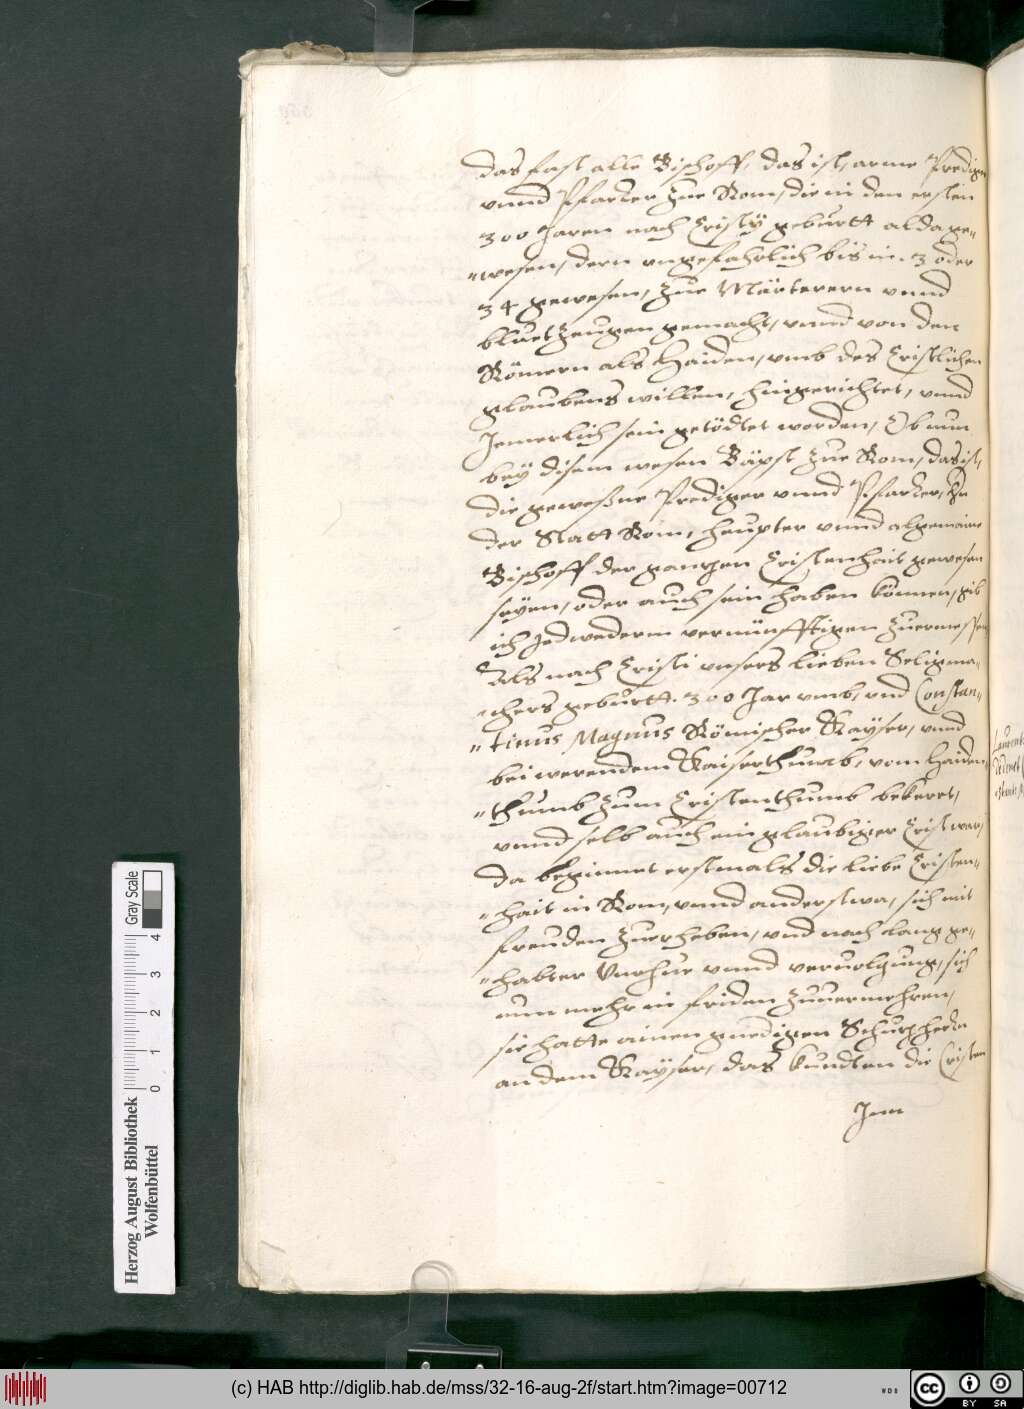 das fast alle Bischoff, das ist, arme Prediger
vnnd Pfarrer zue Rom, die in den ersten
300 Jaren nach Cristy geburtt alda ge„
„wesen, dern vngefahrlich bis in .3 oder
34 gewesen, zue Märterern vnnd
bluetzeugen gemacht, vnnd von den
Römern als Haiden, vmb des Cristlichen
glaubens willen, hingerichtet, vnnd
Jemerlich sein getödtet worden, Ob nun
bey disem wesen Bäpst zue Rom, das ist,
die geweßne Prediger vnnd Pfarrer, In
der Statt Rom, heupter vnnd algemaine
Bischoff der gantzen Cristenhait gewesen
seyen, oder auch sein haben können, gib
ich Jedwederm vernünfftigen Zuermessen
Als nach Cristi vnsers lieben Seligma„
„chers geburtt. 300 Jar vmb, vnd Constan„
„tinus Magnus Römischer Kayser, vnnd
bei werendem Kaiserthumb, vom Haiden„
„thumb zum Cristenthumb bekeret,
vnnd selb auch ein glaubiger Crist war,
da beginnet erstmals die liebe Cristen„
„hait in Rom, vnnd anderstwa, sich mit
freuden zuerheben, vnd nach lang ge„
„habter Vnrhue vnnd veruolgung, sich
nun mehr in friden zuuermehren,
sie hatte ainen gnedigen Schutzherrn
an dem Kayser, das kundten die Cristen
Jnn
Herzog August Bibliothek
Wolfenbüttel
0 1 2 3 4
Gray Scale
(c) HAB http://diglib.hab.de/mss/32-16-aug-2f/start.htm?image=00712
WDB
CC BY SA